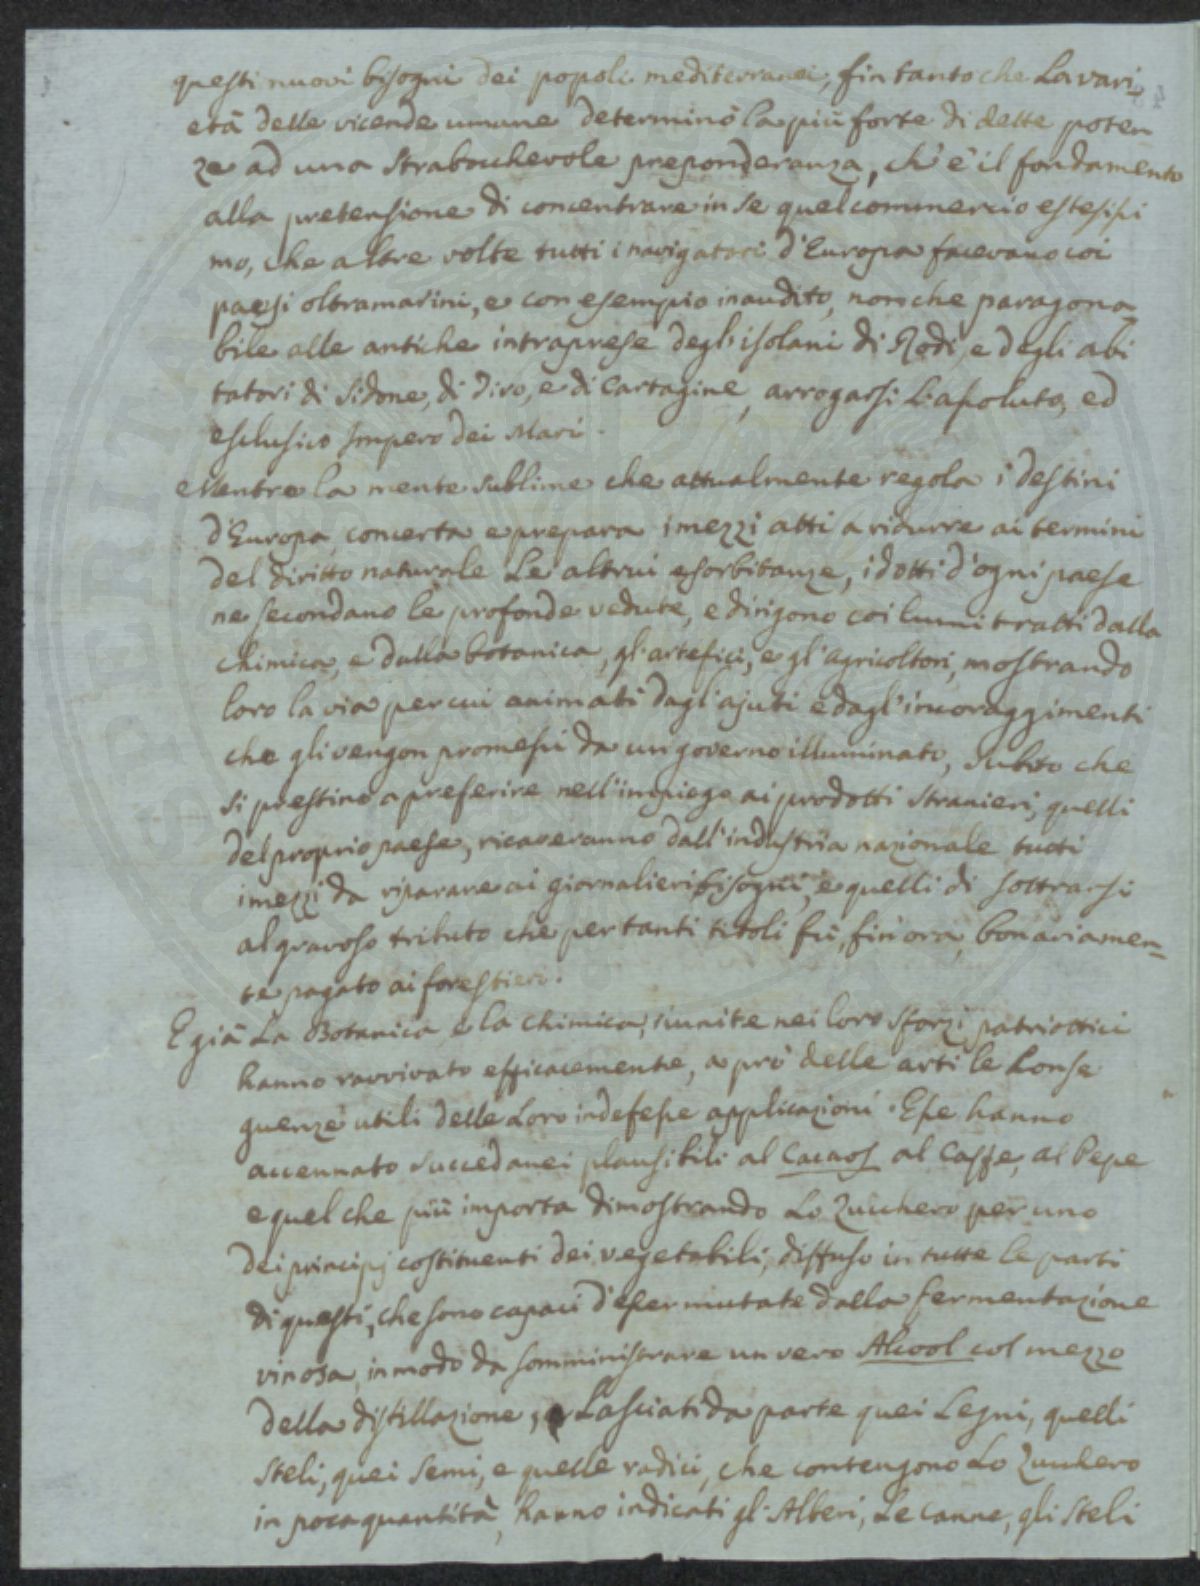 questi nuovi bisogni dei popoli mediterranei, fintantoche la vari-
età delle vicende umane determinò la più forte di dette poten
ze ad una strabocchevole preponderanza, ch'è il fondamento
alla pretensione di concentrare in se quel commercio estesissi
mo, che altre volte tutti i navigatori d'Europa facevano coi
paesi oltramarini, e con esempio inaudito, non che paragona-
bile alle antiche intraprese degl'isolani di Rodi, e degli abi
tatori di Sidone, di Tiro, e di Cartagine, arrogarsi l'assoluto, ed
esclusivo Impero dei Mari.
Mentre la mente sublime che attualmente regola i destini
d'Europa, concerta e prepara i mezzi atti a ridurre ai termini
del diritto naturale le altrui esorbitanze, i dotti d'ogni paese
ne secondano le profonde vedute, e dirigono coi lumi tratti dalla
chimica, e dalla botanica, gl'artefici, e gl'agricoltori, mostrando
loro la via per cui animati dagl'ajuti e dagl'incoraggimenti
che gli vengon promessi da un governo illuminato, subito che
si prestino a preferire nell'impiego ai prodotti stranieri, quelli
del proprio paese, ricaveranno dall'industria nazionale tutti
i mezzi da riparare ai giornalieri bisogni, e quelli di sottrarsi
al gravoso tributo che per tanti titoli fù, fin'ora, bonariamen-
te pagato ai forestieri.
E già la Botanica e la chimica, riunite nei loro sforzi patriottici
hanno ravvivato efficacemente, a prò delle arti le Conse
guenze utili delle loro indefesse applicazioni. Esse hanno
accennato succedanei plausibili al Cacaos al Caffe, al Pepe
e quel che più importa dimostrando lo Zucchero per uno
dei principj costituenti dei vegetabili, diffuso in tutte le parti
di questi, che sono capaci d'esser mutate dalla fermentazione
vinosa, in modo da somministrare un vero Alcool col mezzo
della distillazione, Lasciati da parte quei Legni, quelli
steli, quei semi, e quelle radici, che contengono lo Zucchero
in poca quantità, hanno indicati gl'Alberi, le canne, gli steli